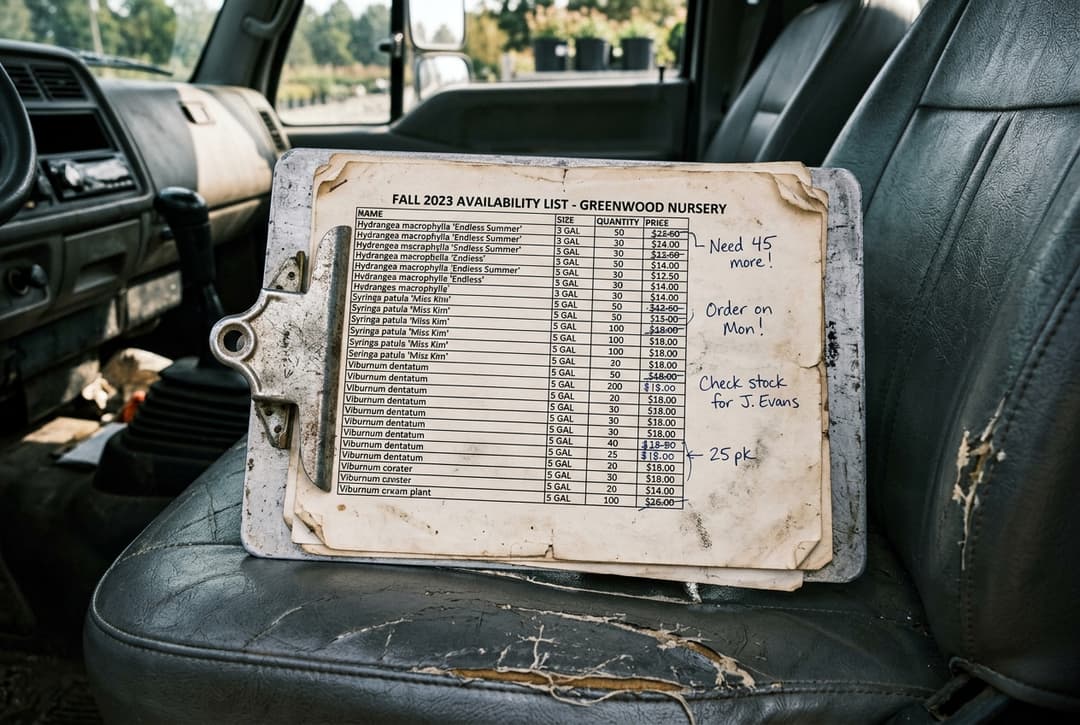 FALL 2023 AVAILABILITY LIST - GREENWOOD NURSERY
NAME SIZE QUANTITY PRICE
Hydrangea macrophylla 'Endless Summer' 3 GAL 50 $28.60
Hydrangea macrophylla 'Endless Summer' 3 GAL 30 $14.00
Hydrengea mscraphylla 'Sndless Summer' 5 GAL 30
Hydrangea 'Endless' 5 GAL 50 $14.00
Hydrangea macraphylla 'Endless Summer' 5 GAL 30 $12.50
Hydrangea macrophylla 'Endless' 5 GAL 30 $14.00
Hydranges macrophylle' 3 GAL 30 $14.00
Syringa patula 'Miss Kim' 5 GAL 50 $42.60
Syringa patula 'Miss Kim' 5 GAL 50 $15.00
Syringa patula 'Miss Kim' 5 GAL 100 $18.00
Syringa patula 'Miss Kim' 5 GAL 100 $18.00
Syringa patula 'Miss Kim' 5 GAL 100 $18.00
Seringa patula 'Misz Kem' 5 GAL 20 $18.00
Viburnum dentatum 5 GAL 50 $48.00
Viburnum dentatum 5 GAL 200 $18.00
Viburnum dentatum 5 GAL 20 $18.00
Viburnum dentatum 5 GAL 30 $18.00
Viburnum dentatum 5 GAL 30 $18.00
Viburnum dentatum 5 GAL 40
Viburnum dentatum 5 GAL 25 $18.00
Viburnum dentatum 5 GAL 20 $18.00
Viburnum corater 5 GAL 30 $18.00
Viburnum 5 GAL 20 $14.00
Viburnum plant 5 GAL 100 $26.00
Need 45
more!
Order on
Mon!
Check stock
for J. Evans
← 25 pk